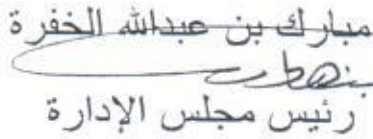 مبارك بن عبدالله الخفرة
رئيس مجلس الإدارة